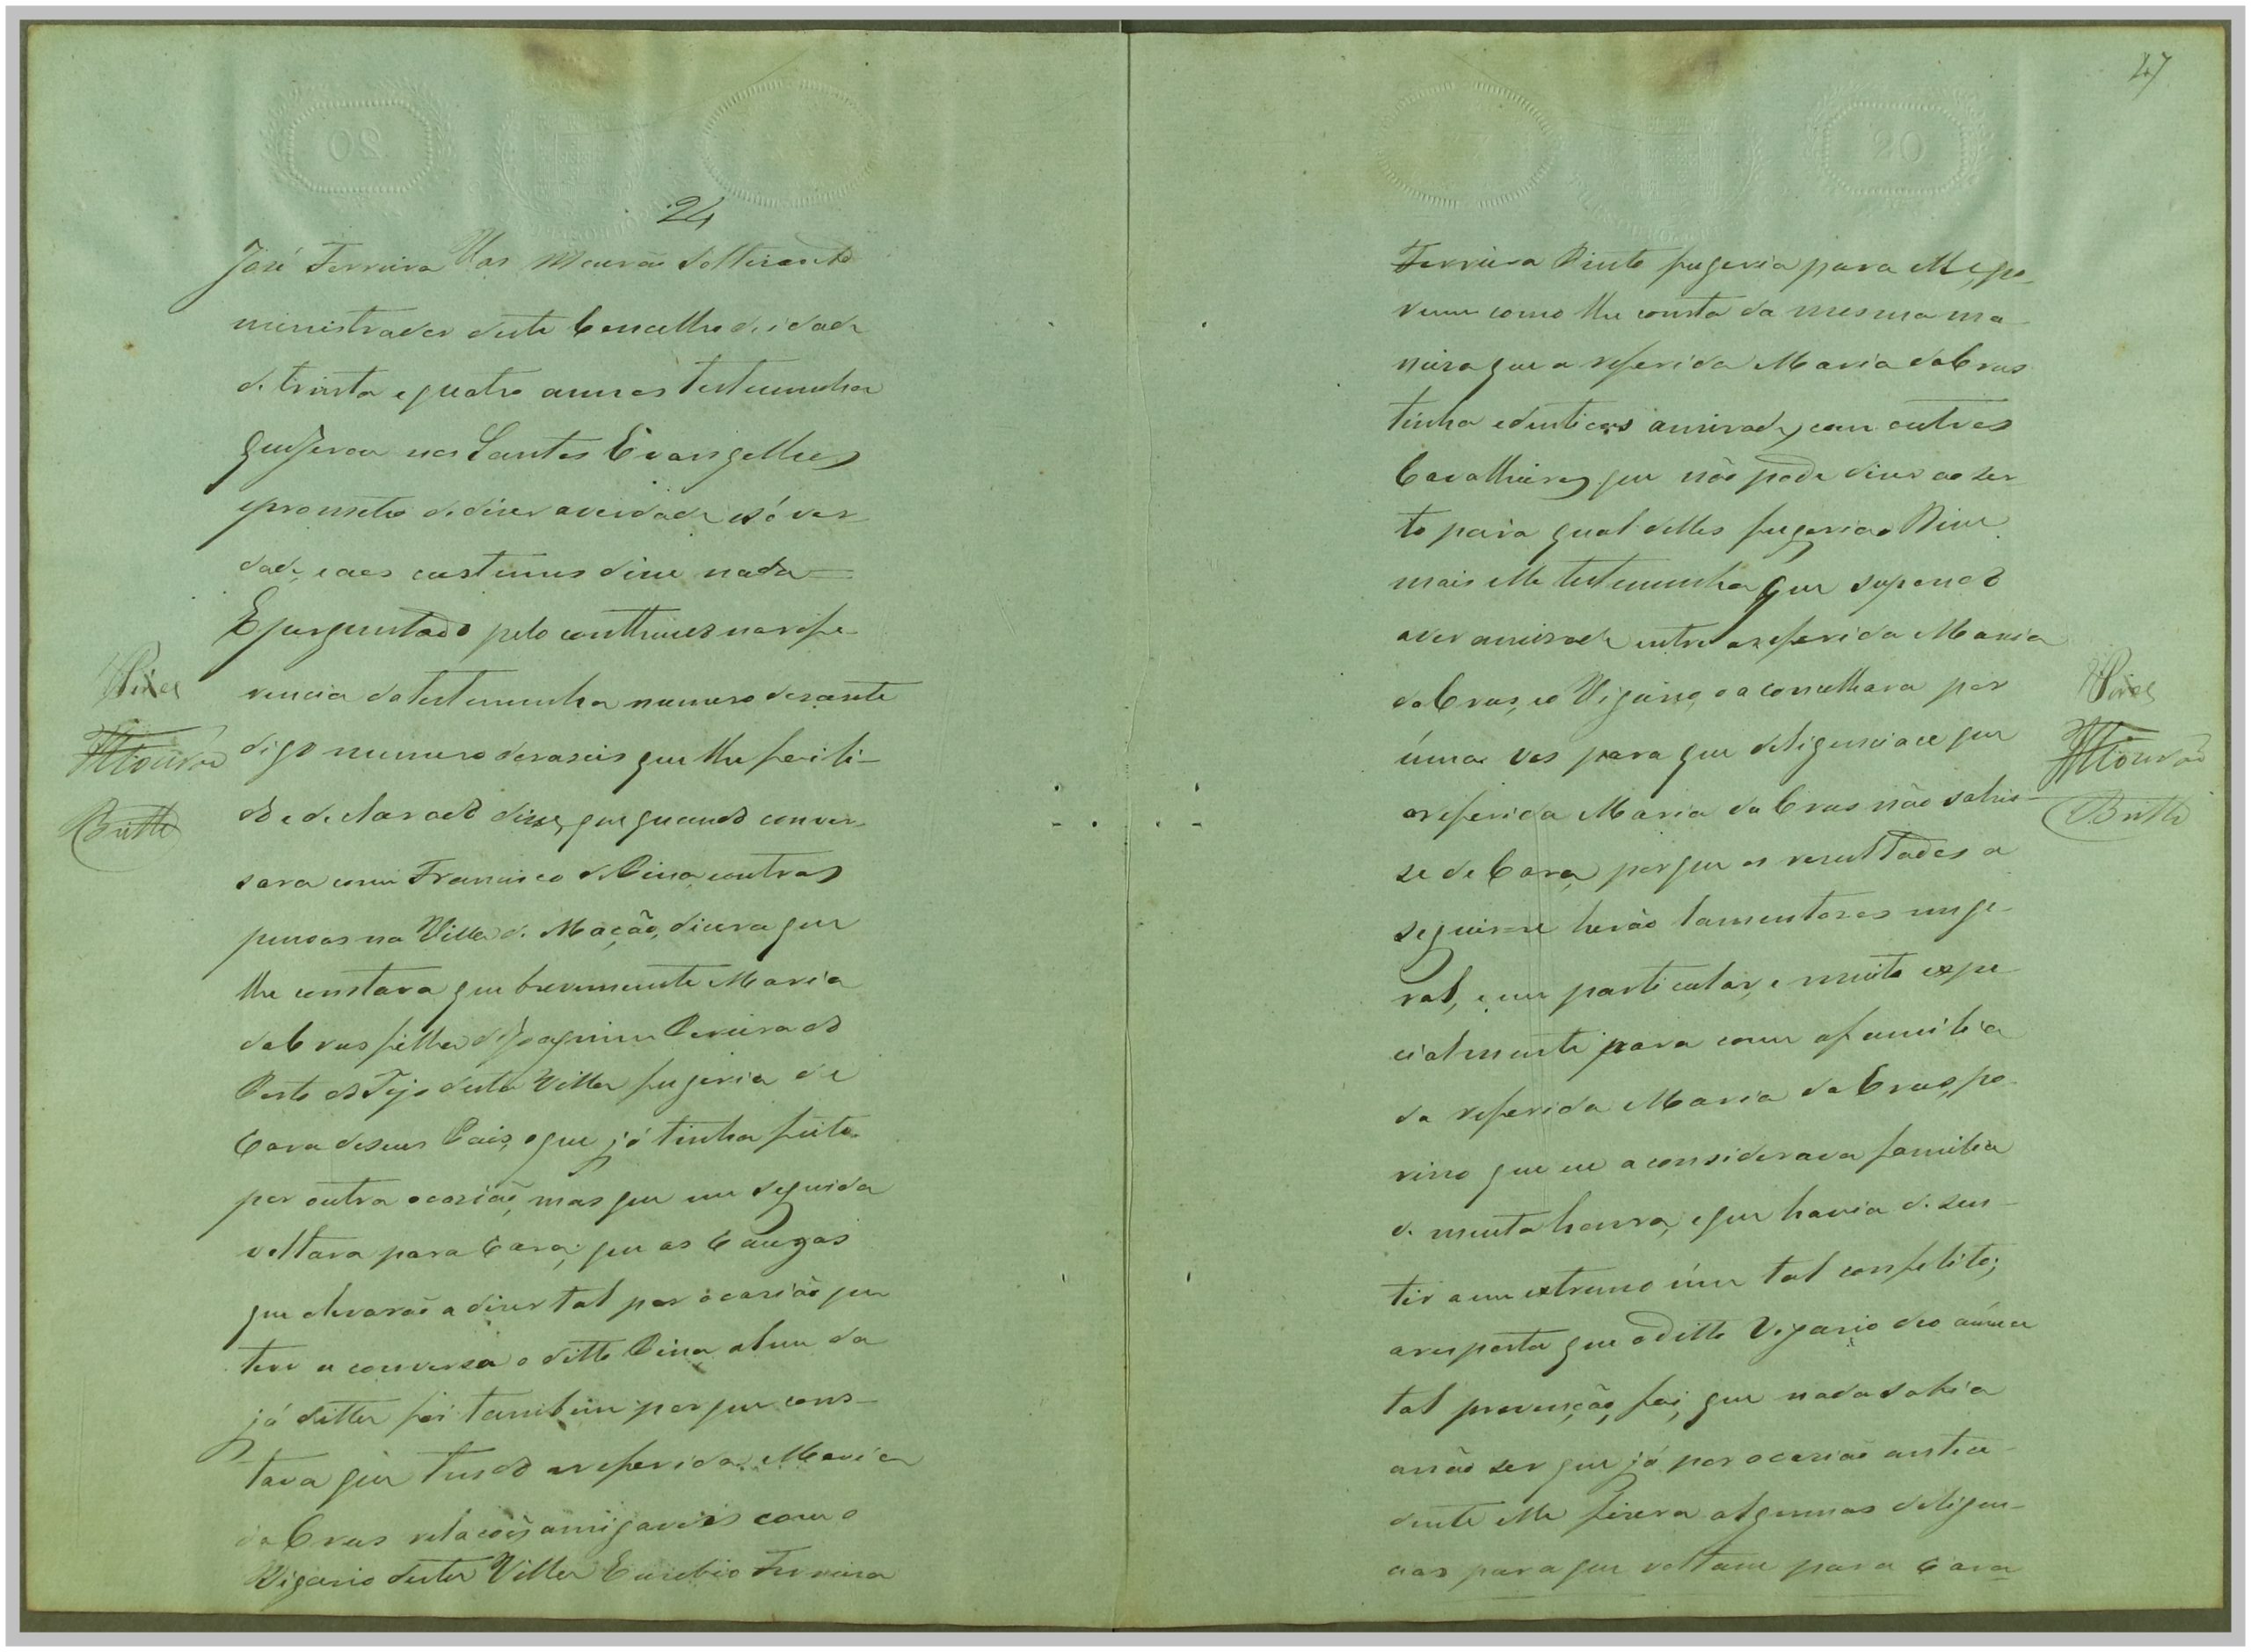 24
José Ferreira Vas Mourão Solteiro Ad
ministrador deste Concelho de idade
de trinta e quatro annos testemunha
que jurou nos Santos Evangelhos
e prometeo de dizer a verdade e só ver
dade, e aos custumes dice nada =
E perguntado pelo contheudo na refe
rencia da testemunha numero desasete
digo numero desaseis que lhe foi li-
do e declarado disse, que quando conver-
sara com Francisco de Pina, e outras
pessoas na Villa de Mação, dicera que
lhe constara que brevemente Maria
da Crus filha de Joaquim Pereira do
Porto do Tejo desta Villa fugeria de
Caza de seus Pais, o que já tinha feito
por outra ocazião, mas que em seguida
voltara para Caza; que as Cauzas
que o levarão a dizer tal por ocazião que
teve a conversa o ditto Pina alem da
já ditta foi tambem por que cons-
tava que tendo a referida Maria
da Crus relações amigaveis com o
Vigario desta Villa Euzebio Ferreira
Pires
Mourão
Britto
47
Ferreira Pinto fugeria para elle, po
rem como lhe consta da mesma ma
neira que a referida Maria da Crus
tinha edenticas amizades com outros
Cavalheiros que não pode dizer ao ser
to para qual delles fugeria. Disse
mais elle testemunha que supondo
aver amizade entre a referida Maria
da Crus, e o Vigario, o aconselhara por
úma ves para que deligenciace que
a referida Maria da Crus não sahis-
se de Caza, por que os resultados a
seguir-se herão lamentozos em ge-
ral, e em particular, e muito espe
cialmente para com a familia
da referida Maria da Crus, po
risso que eu a considerava familia
de muita honra, e que havia de sen-
tir a um extremo úm tal confelito;
a resposta que o ditto Vigario deo a úma
tal prevenção, foi, que nada sabia
a não ser que já por ocazião antece
dente elle fizera algumas deligen-
cias para que voltasse para Caza
Pires
Mourão
Britto